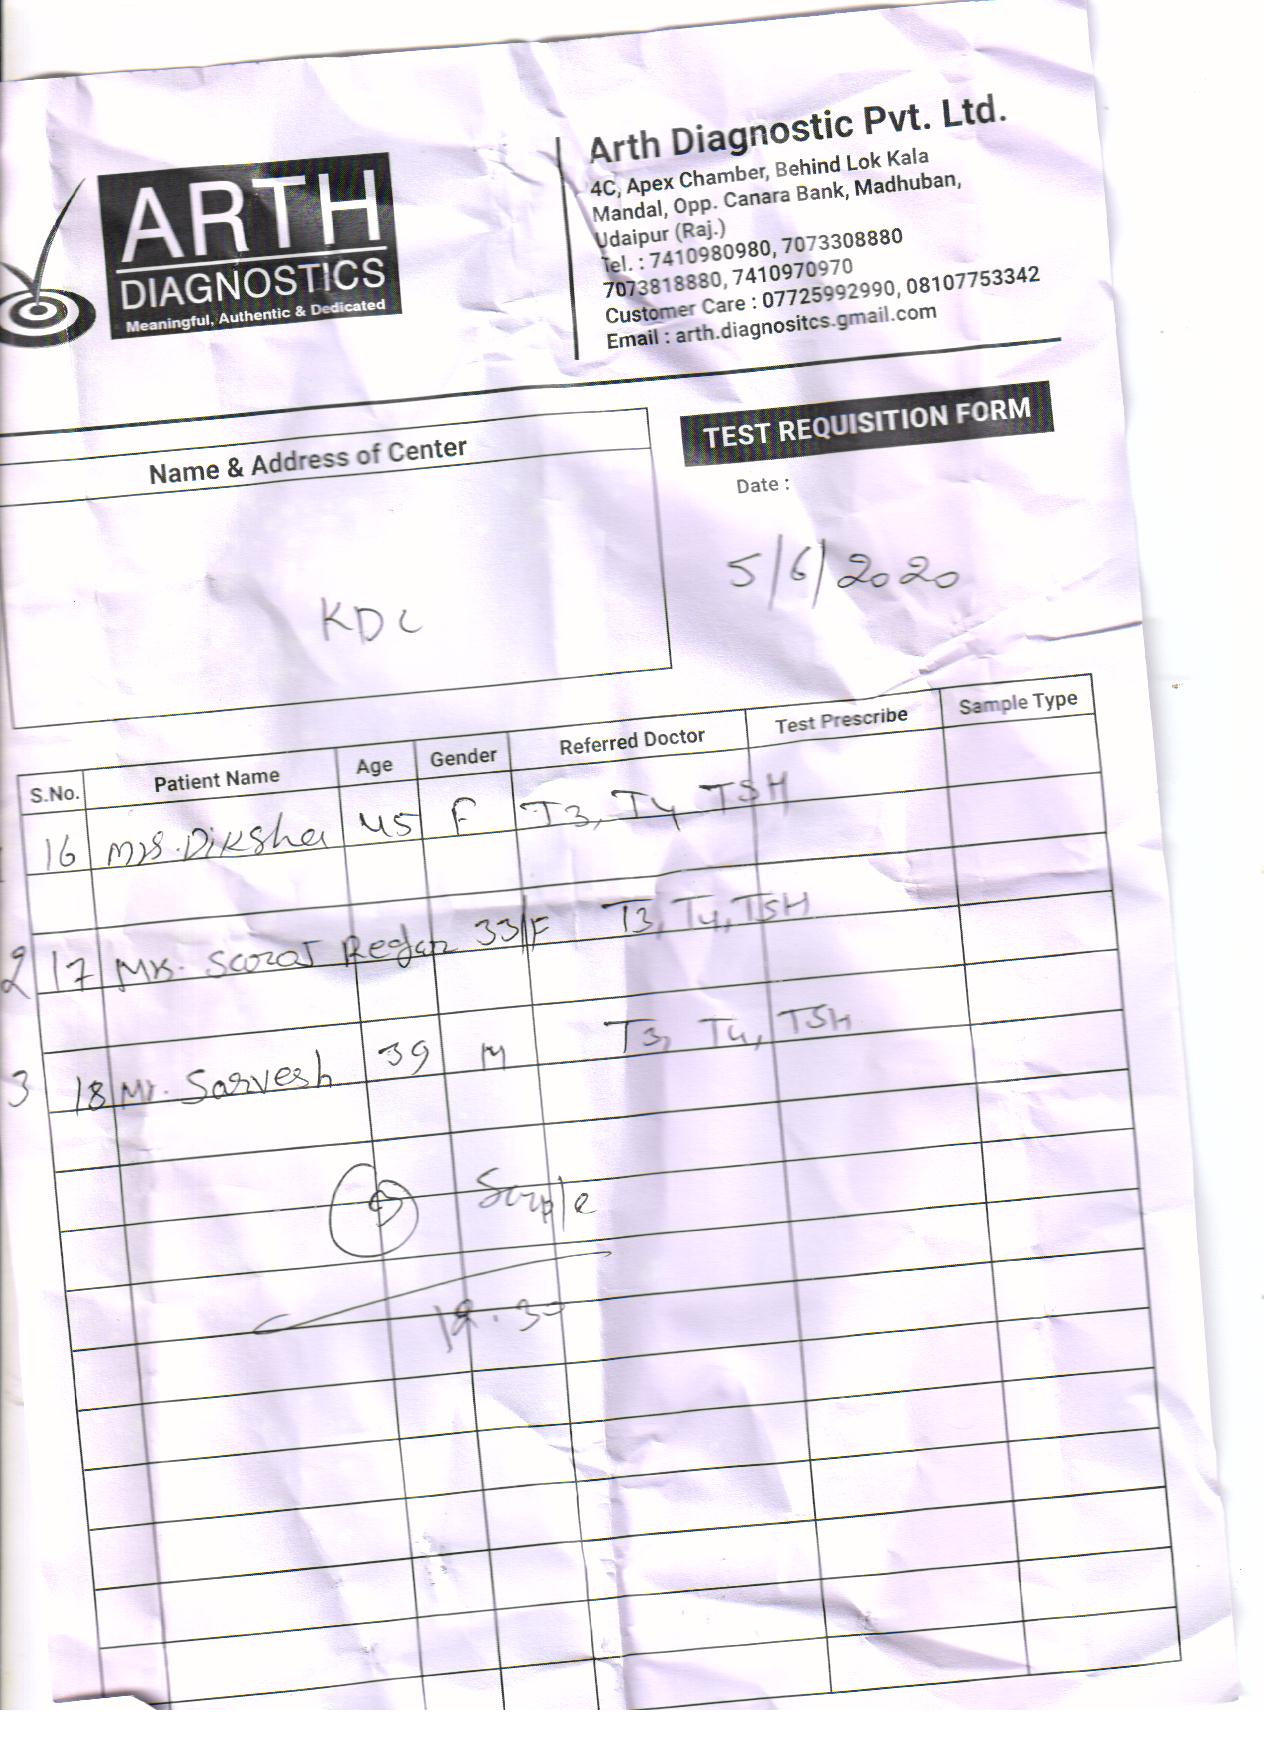 ARTH
DIAGNOSTICS
Meaningful, Authentic & Dedicated
Arth Diagnostic Pvt. Ltd.
4C, Apex Chamber, Behind Lok Kala
Mandal, Opp. Canara Bank, Madhuban,
Udaipur (Raj.)
Tel. : 7410980980, 7073308880
7073818880, 7410970970
Customer Care : 07725992990, 08107753342
Email : arth.diagnositcs.gmail.com
Name & Address of Center
TEST REQUISITION FORM
Date :
5/6/2020
KDC
S.No. Patient Name Age Gender Referred Doctor Test Prescribe Sample Type
16 Mrs. Diksha 45 F T3, T4 TSH
2 17 Mrs. 33/F T3, T4, TSH
3 18 Mr. Sarvesh 39 M T3, T4, TSH
Sample